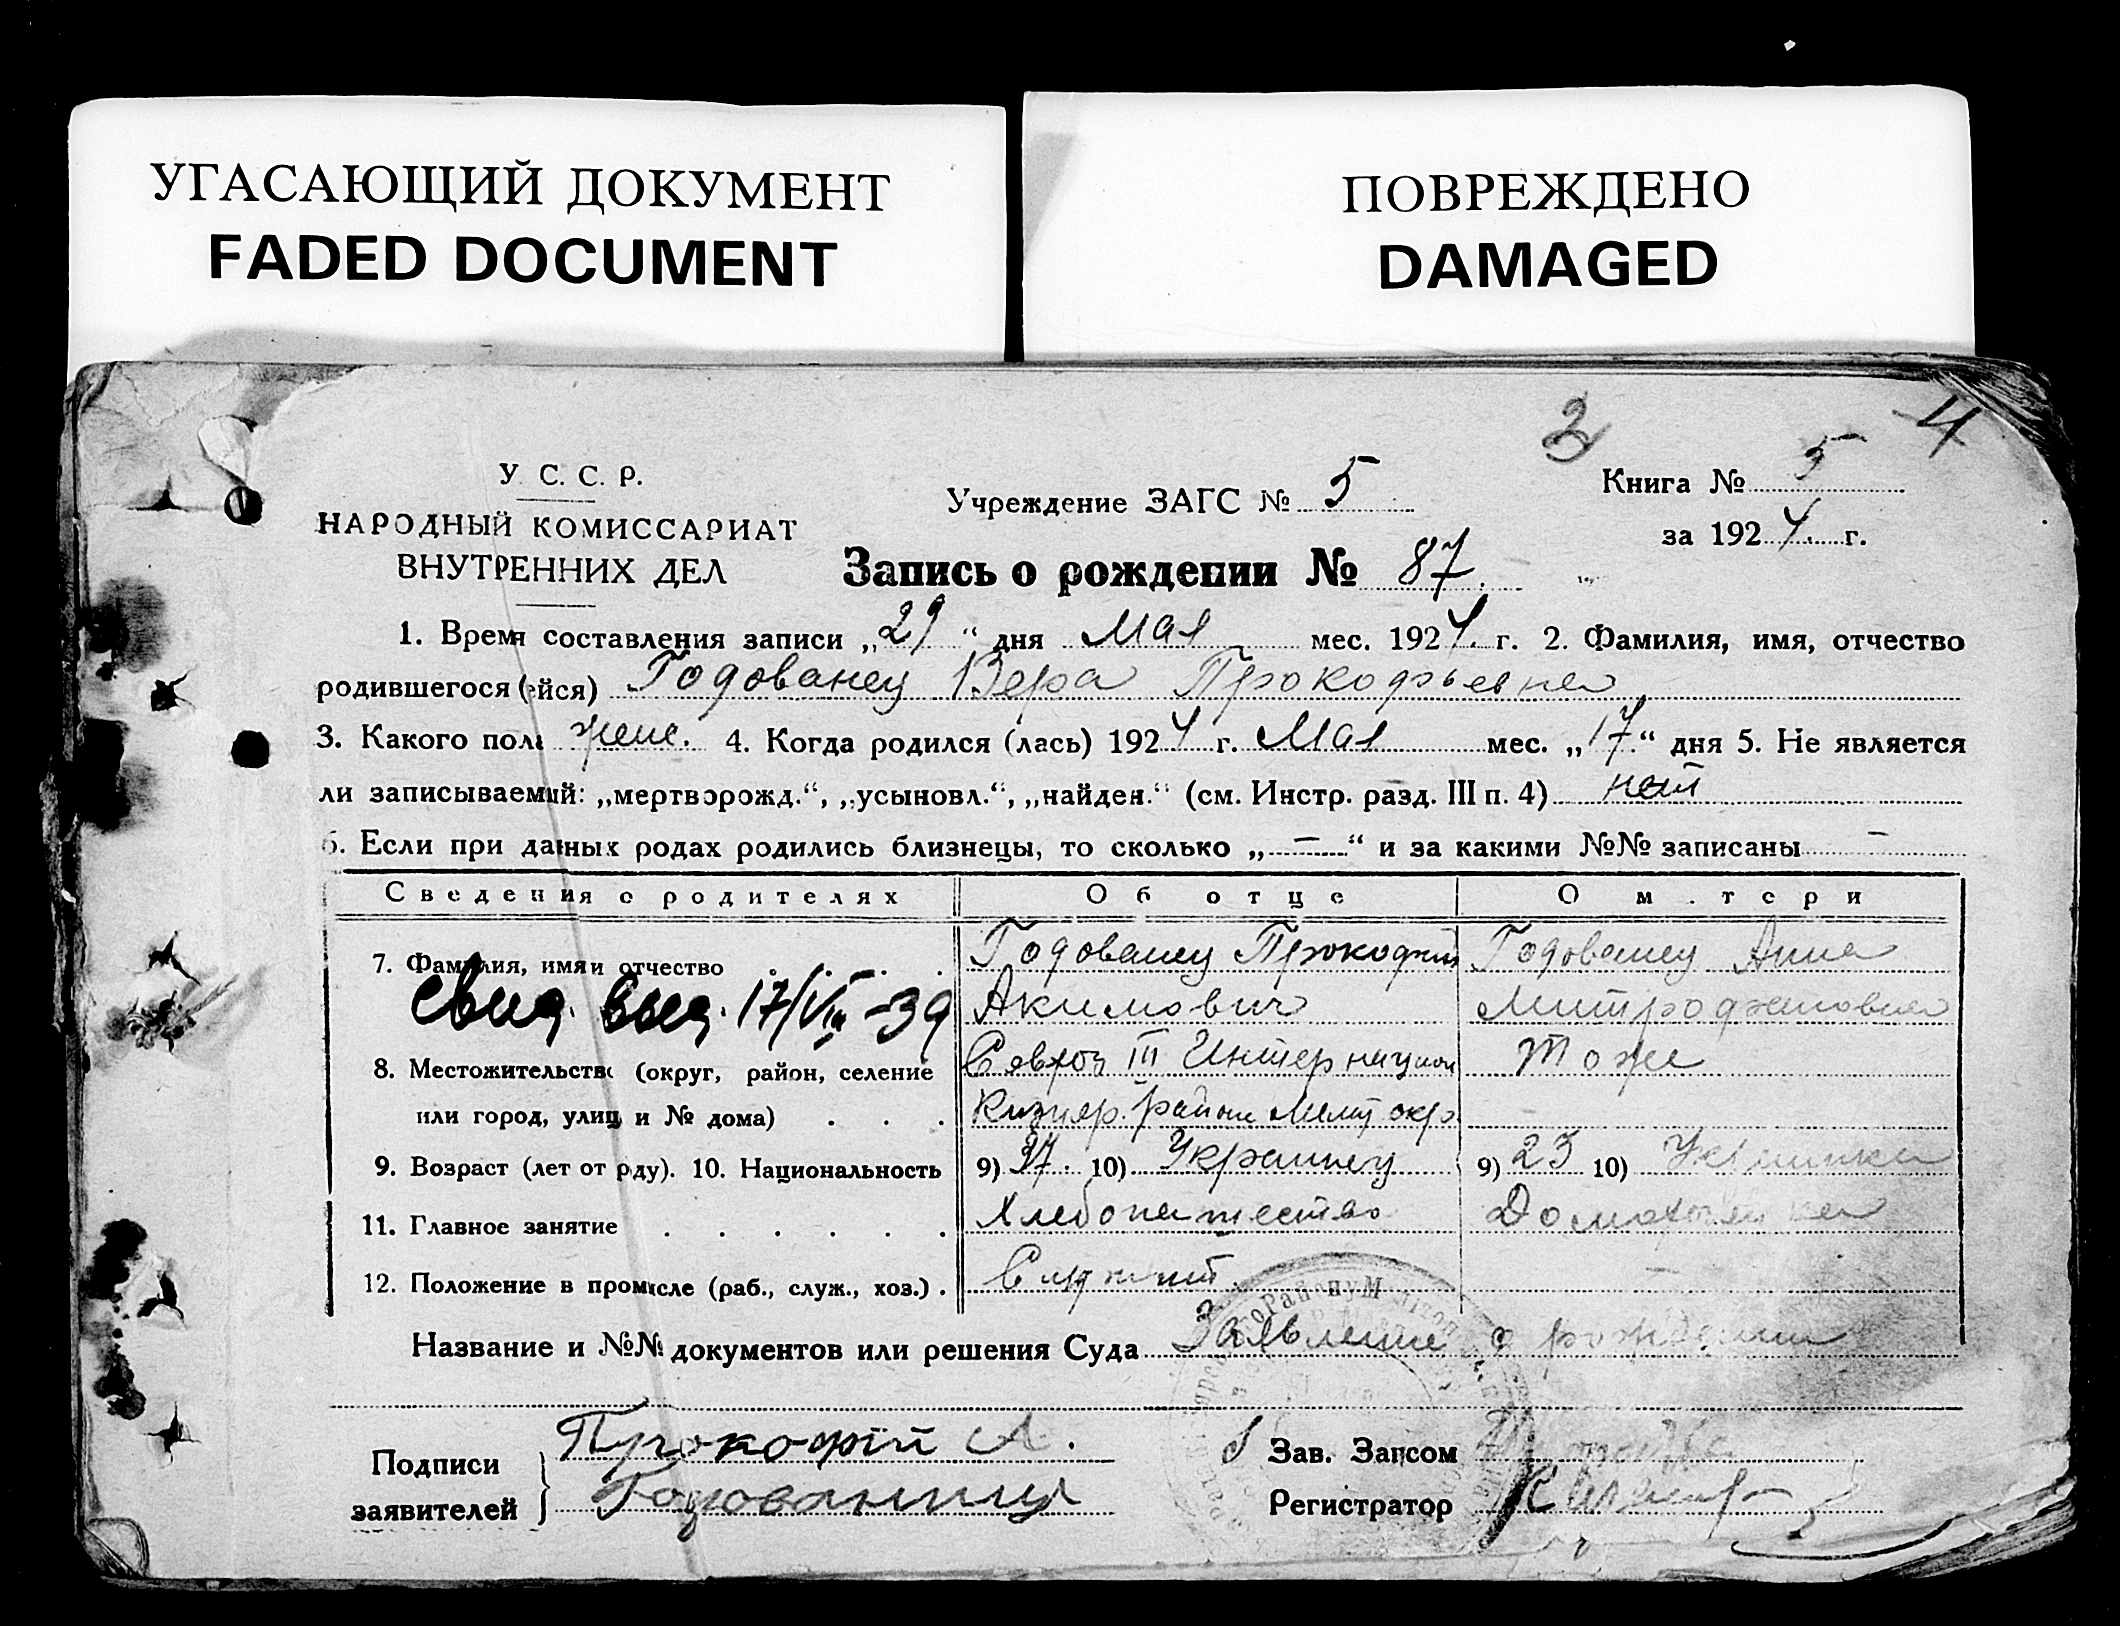 УГАСАЮЩИЙ ДОКУМЕНТ
FADED DOCUMENT
ПОВРЕЖДЕНО
DAMAGED
3 4
У. С. С. Р.
НАРОДНЫЙ КОМИССАРИАТ
ВНУТРЕННИХ ДЕЛ
Учреждение ЗАГС № 5
Книга № 5
за 1924 г.
Запись о рождении № 87.
1. Время составления записи „29“ дня Мая мес. 1924 г. 2. Фамилия, имя, отчество
родившегося (ейся) Годованец Вера Прокофьевна
3. Какого пола женс. 4. Когда родился (лась) 1924 г. Мая мес. „17“ дня 5. Не является
ли записываемый: „мертворожд.“, „усыновл.“, „найден.“ (см. Инстр. разд. III п. 4) нет
6. Если при данных родах родились близнецы, то сколько „—“ и за какими №№ записаны —
Сведения о родителях Об отце О матери
7. Фамилия, имя и отчество . . . . Годованец Прокофий Годованец Анна
Свид. выд. 17/VIII-39 Акимович Митрофановна
8. Местожительство (округ, район, селение III Интернацион тоже
или город, улиц и № дома) . . . район Мелит окр
9. Возраст (лет от роду). 10. Национальность 9) 27. 10) Украинец 9) 23 10) Украинка
11. Главное занятие . . . . . . Хлебопашество Домохозяйка
12. Положение в промысле (раб., служ., хоз.) . —
Название и №№ документов или решения Суда Заявление о рождении
Подписи
заявителей
Прокофій А.
Зав. Загсом
Регистратор